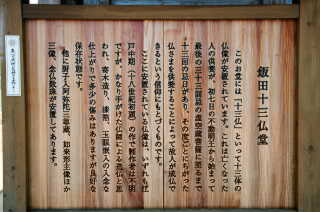 飯田十三仏堂
このお堂には「十三仏」といって十三体の
仏像が安置されています。これは亡くなった
人の供養が、初七日の不動明王から始まって
最後の三十三回忌の虚空蔵菩薩に至るまで
十三回の忌日があり、その度ごとにちがった
仏さまを供養することによって故人が成仏で
きるという信仰にもとづくものです。
ここに安置されている仏像は、いずれも江
戸中期（十八世紀初頭）の作で製作者は不明
ですが、かなり手がけた仏師による造仏と思
われ、寄木造り、漆箔、玉眼嵌入の入念な
仕上がりで多少の傷みはありますが良好な
保存状態です。
他に厨子入阿弥陀三尊蔵、如来形立像ほか
三像、念仏数珠が安置してあります。